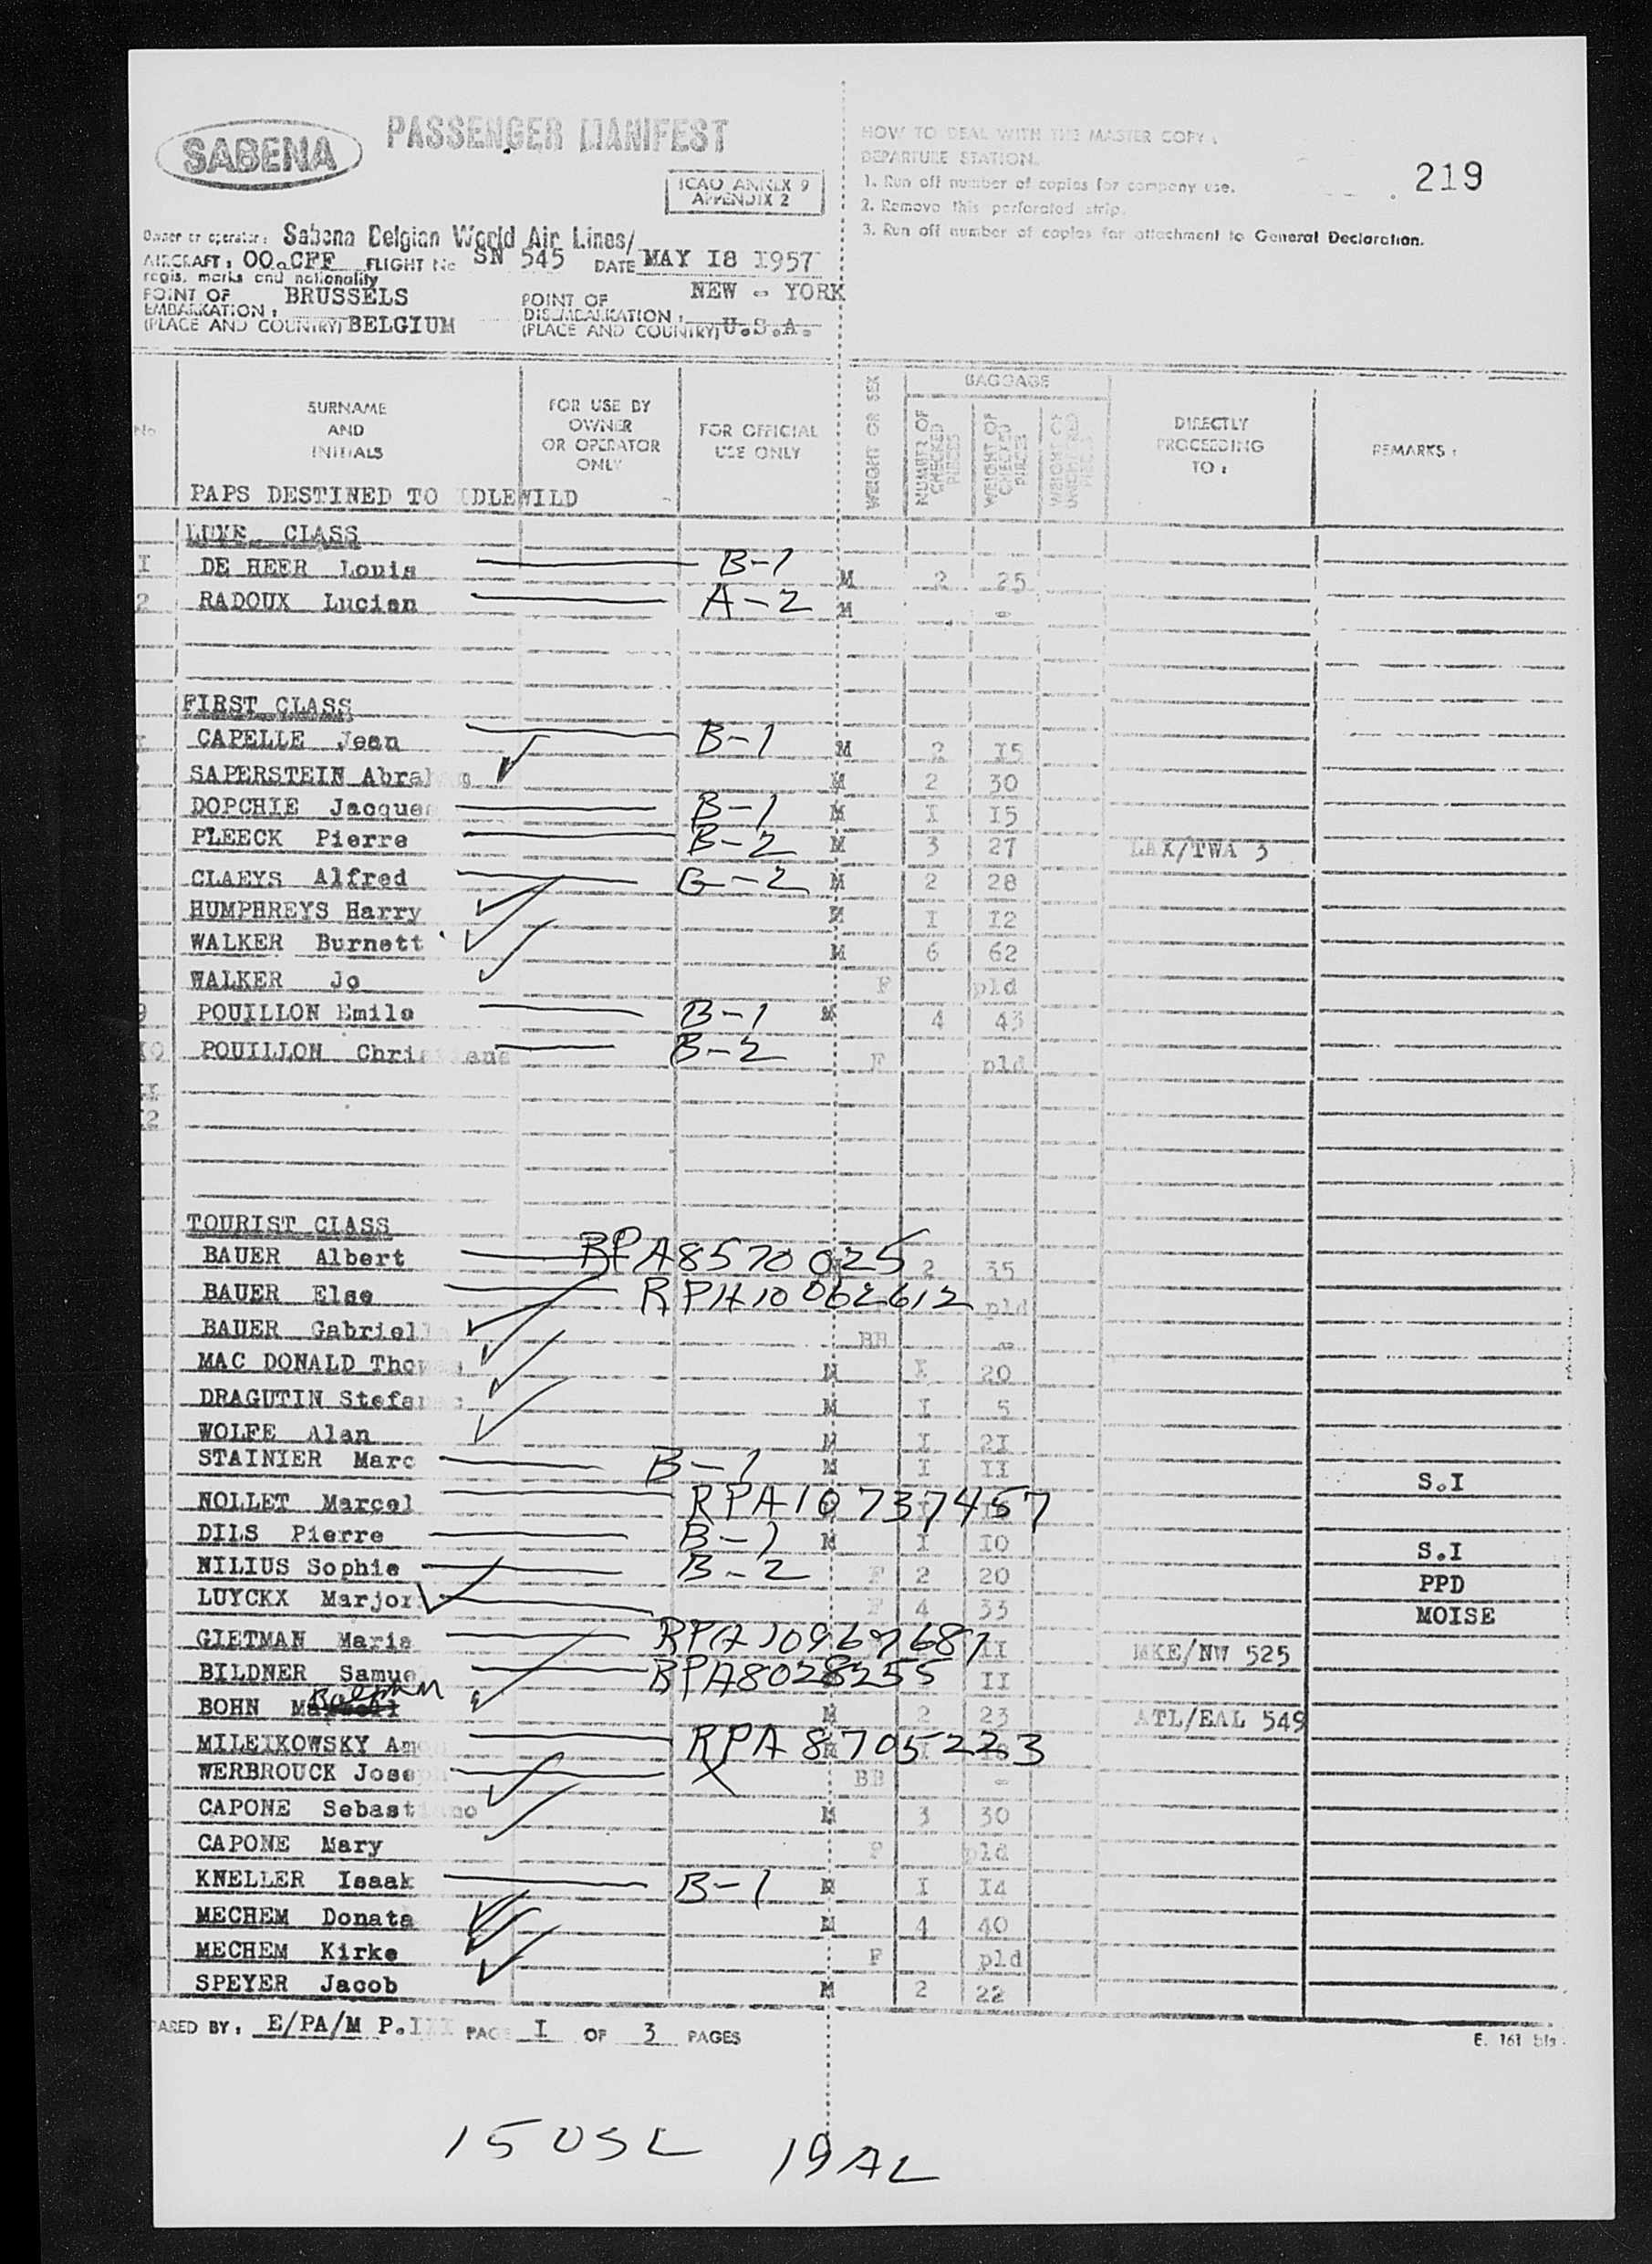 SABENA
PASSENGER MANIFEST
ICAO ANNEX 9
APPENDIX 2
HOW TO DEAL WITH THE MASTER COPY :
DEPARTURE STATION.
1. Run off number of copies for company use.
2. Remove this perforated strip.
3. Run off number of copies for attachment to General Declaration.
219
Owner or operator : Sabena Belgian World Air Lines/
AIRCRAFT : OO.CFF FLIGHT No SN 545 DATE MAY I8 I957
regis. marks and nationality
POINT OF EMBARKATION : (PLACE AND COUNTRY) BRUSSELS BELGIUM
POINT OF DISEMBARKATION : (PLACE AND COUNTRY) NEW - YORK U.S.A.
No
SURNAME AND INITIALS
FOR USE BY OWNER OR OPERATOR ONLY
FOR OFFICIAL USE ONLY
WEIGHT OR SEX
BAGGAGE
NUMBER OF CHECKED PIECES
WEIGHT OF CHECKED PIECES
WEIGHT OF
DIRECTLY PROCEEDING TO :
REMARKS :
PAPS DESTINED TO IDLEWILD
LUXE CLASS
I DE HEER Louis B-1 M 2 25
2 RADOUX Lucien A-2 M -
FIRST CLASS
CAPELLE Jean B-1 M 2 I5
SAPERSTEIN Abra M 2 30
DOPCHIE Jacques B-1 M I I5
PLEECK Pierre B-2 M 3 27 LAX/TWA 3
CLAEYS Alfred G-2 M 2 28
HUMPHREYS Harry M I I2
WALKER Burnett M 6 62
WALKER Jo F pld
9 POUILLON Emile B-1 M 4 43
IO POUILLON Christiane B-2 F pld
II
I2
TOURIST CLASS
BAUER Albert BPA8570025 2 35
BAUER Else RPH10062612 pld
BAUER Gabriell BB -
MAC DONALD Thomas M I 20
DRAGUTIN Stefa M I 5
WOLFE Alan M I 2I
STAINIER Marc B-1 M I II S.I
NOLLET Marcel RPA10737457
DILS Pierre B-1 M I IO S.I
NILIUS Sophie B-2 F 2 20 PPD
LUYCKX Marjor F 4 33 MOISE
GIETMAN Maria RPA10969681 II MKE/NW 525
BILDNER Samuel BPA8028255 II
BOHN M 2 23 ATL/EAL 549
MILEIKOWSKY Am RPA8705223
WERBROUCK Joseph X BB -
CAPONE Sebastiano M 3 30
CAPONE Mary F pld
KNELLER Isaak B-1 M I I4
MECHEM Donata M 4 40
MECHEM Kirke F pld
SPEYER Jacob M 2 22
ARED BY : E/PA/M P.III PAGE I OF 3 PAGES
E. 161 bis
15 USL 19 AL